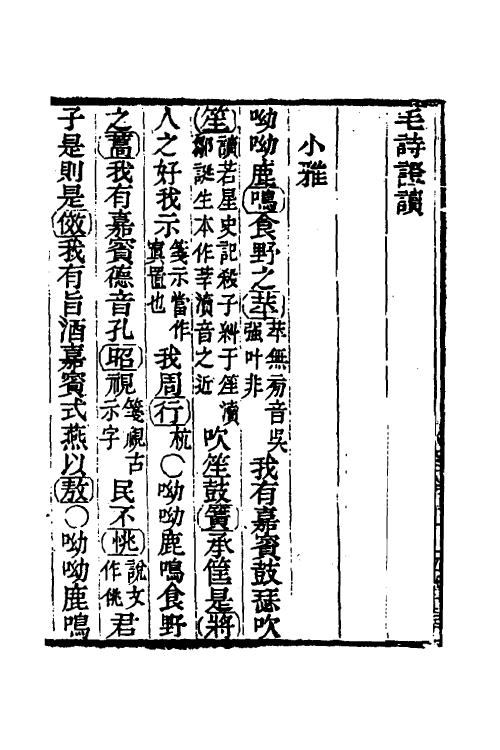 毛詩證讀
小雅
呦呦鹿鳴食野之苹苹無旁音吳强叶非我有嘉賓鼓瑟吹
笙讀若星史記殺子糾于笙瀆鄒誕生本作莘瀆音之近吹笙鼓簧承筐是將
人之好我示箋示當作寘置也我周行杭〇呦呦鹿鳴食野
之蒿我有嘉賓德音孔昭視箋視古示字民不恌說文作佻君
子是則是傚我有旨酒嘉賓式燕以敖〇呦呦鹿鳴